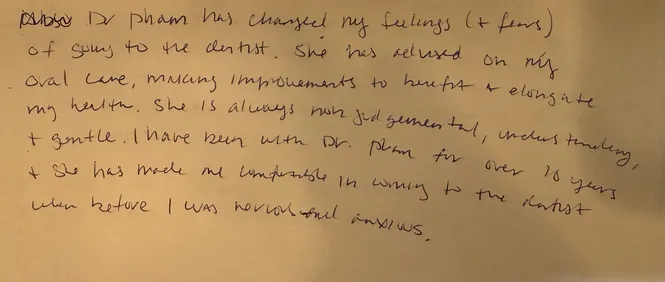 Dr Pham has changed my feelings (+ fears)
of going to the dentist. She has advised on my
oral care, making improvements to benefit + elongate
my health. She is always non judgemental, understanding,
+ gentle. I have been with Dr. Pham for over 10 years
+ she has made me comfortable in coming to the dentist
when before I was nervous and anxious.